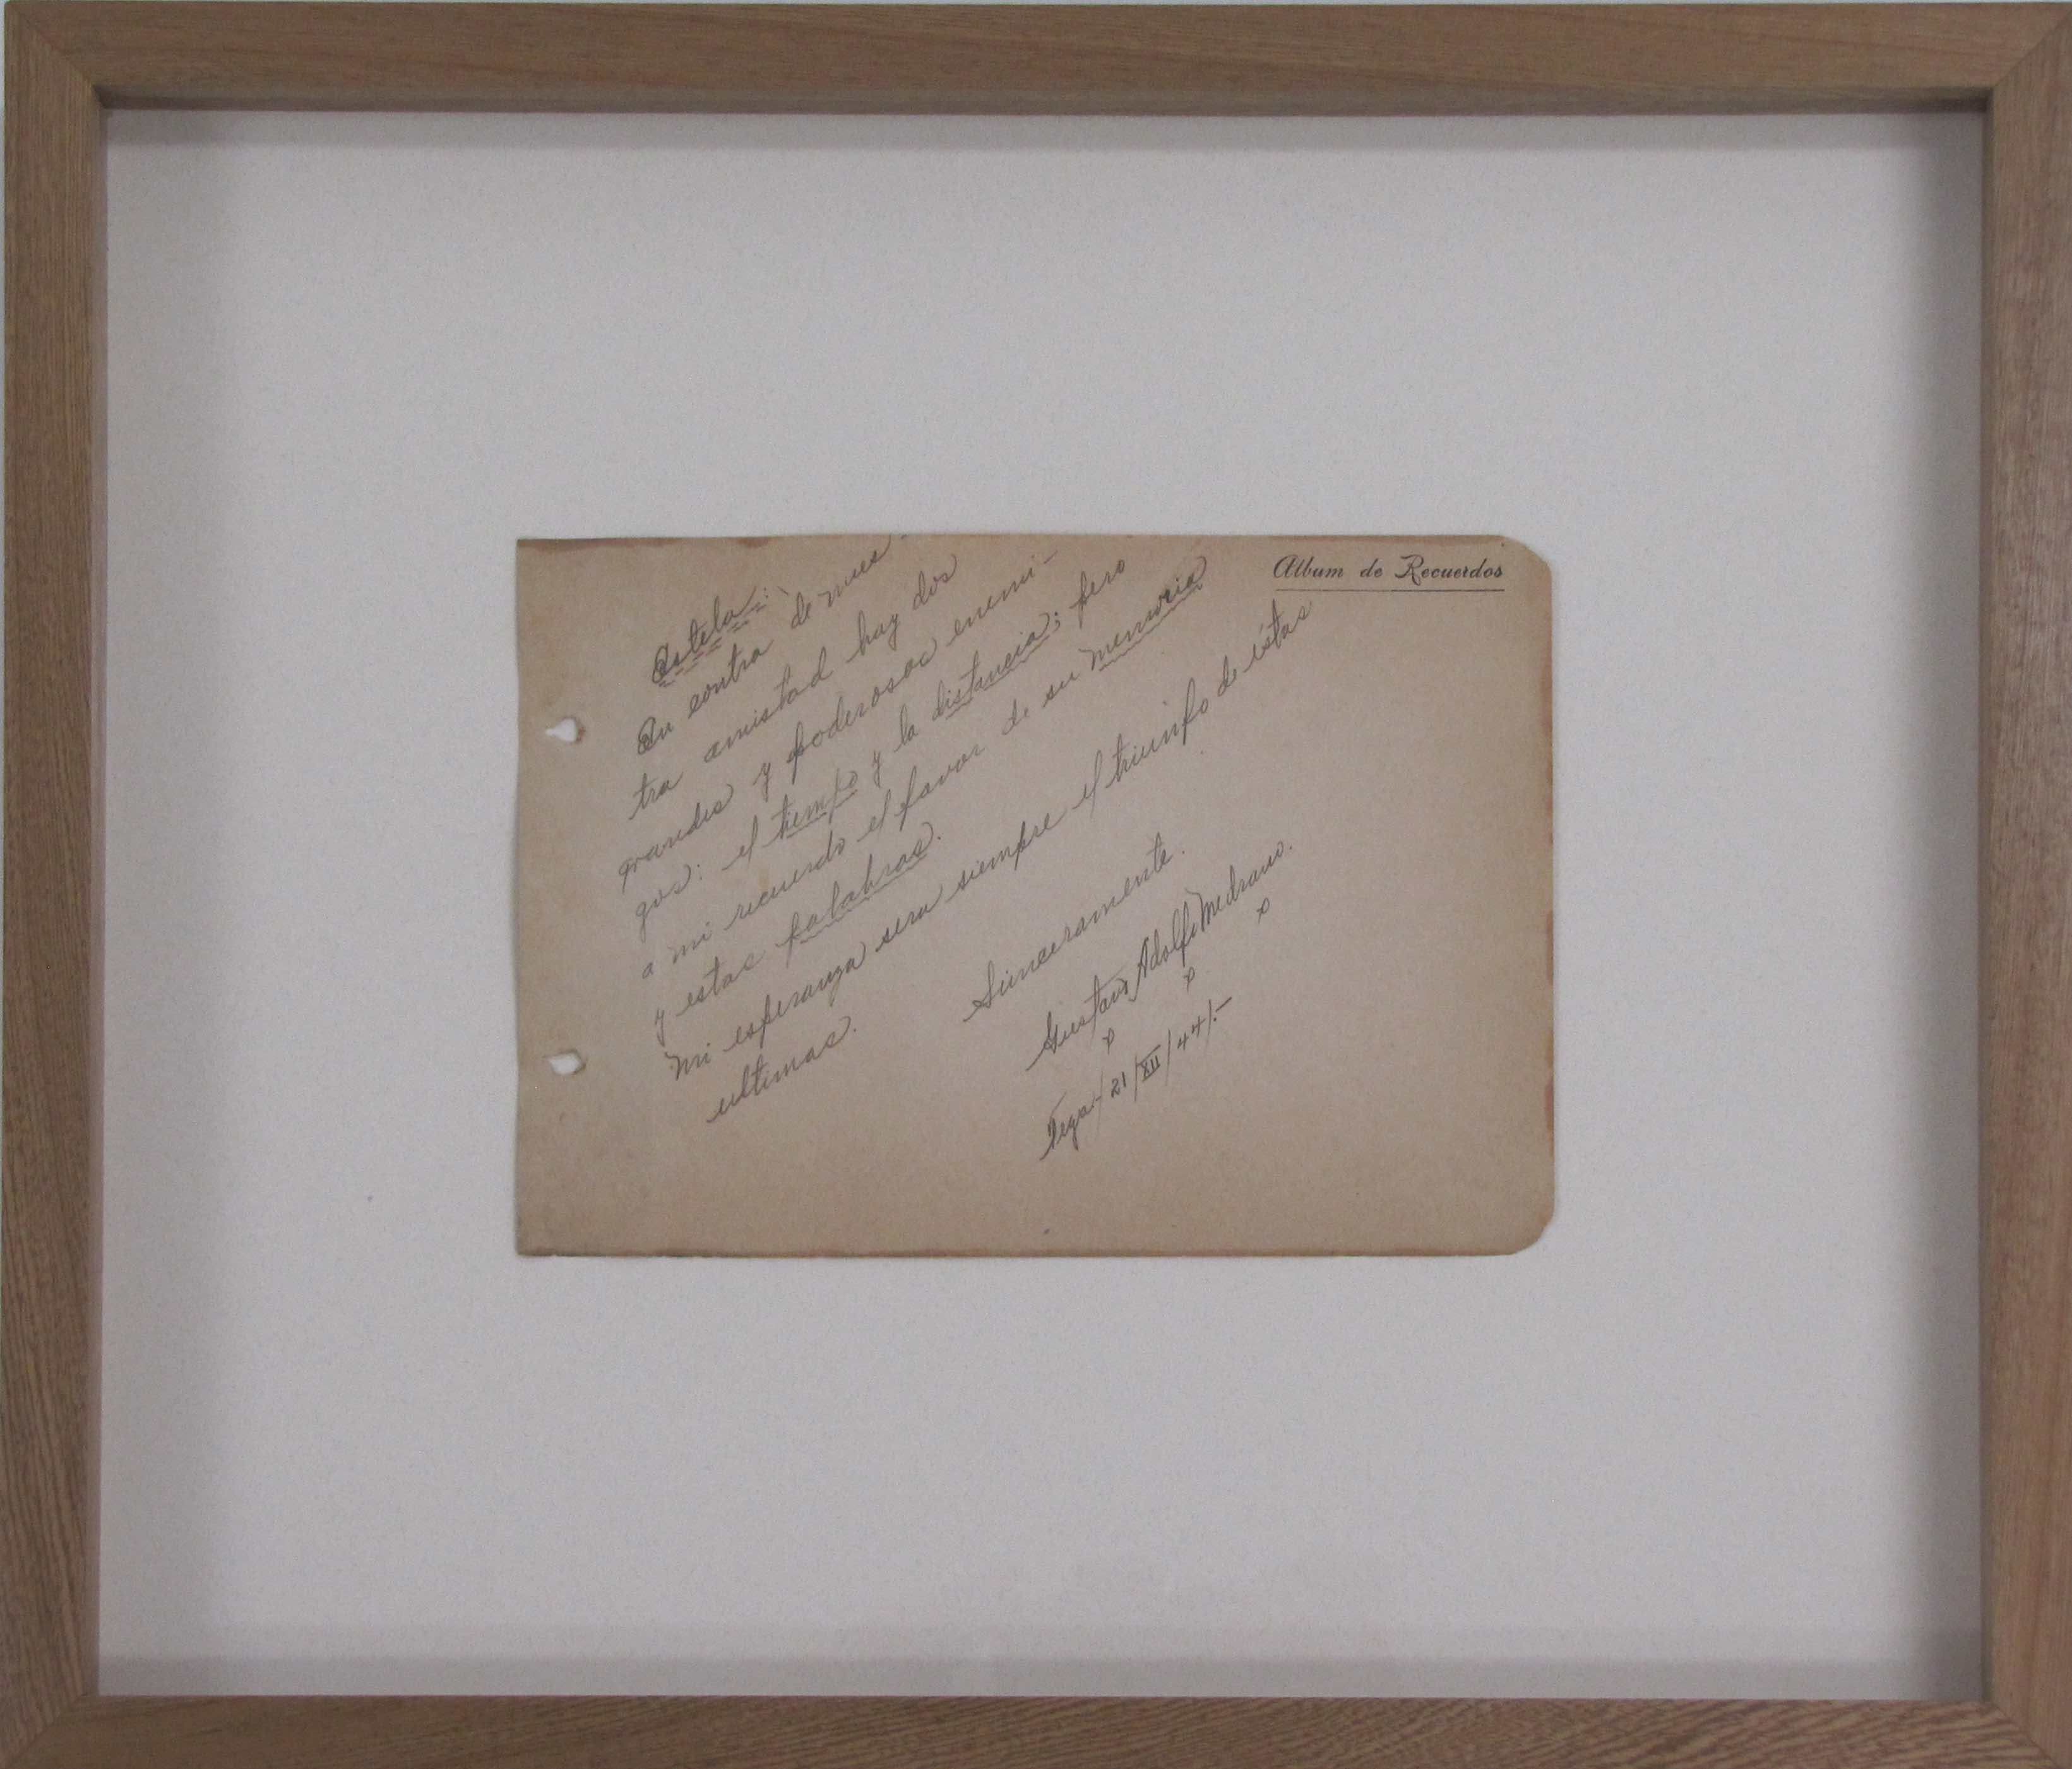 Album de Recuerdos
Estela:
En contra de nues-
tra amistad hay dos
grandes y poderosos enemi-
gos: el tiempo y la distancia; pero
a mi recuerdo el favor de su memoria
y estas palabras.
Mi esperanza sera siempre el triunfo de éstas
ultimas.
Sinceramente.
Gustavo Adolfo Medrano.
Tega-/21/XII/44/.-